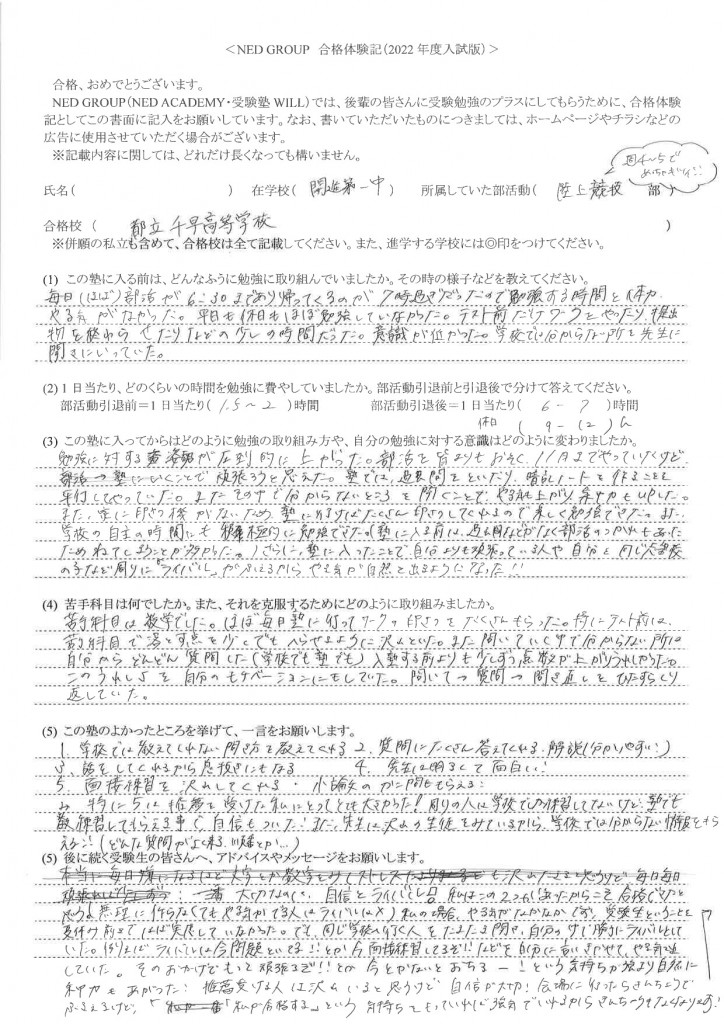 ＜NED GROUP 合格体験記（2022 年度入試版）＞
合格、おめでとうございます。
NED GROUP（NED ACADEMY・受験塾 WILL）では、後輩の皆さんに受験勉強のプラスにしてもらうために、合格体験
記としてこの書面に記入をお願いしています。なお、書いていただいたものにつきましては、ホームページやチラシなどの
広告に使用させていただく場合がございます。
※記載内容に関しては、どれだけ長くなっても構いません。
週4〜5で
めちゃキツイ!!
氏名（ ） 在学校（ 開進第一中 ） 所属していた部活動（ 陸上競技 部 ）
合格校（ 都立千早高等学校 ）
※併願の私立も含めて、合格校は全て記載してください。また、進学する学校には◎印をつけてください。
(1) この塾に入る前は、どんなふうに勉強に取り組んでいましたか。その時の様子などを教えてください。
毎日(ほぼ)部活が6:30まであり帰ってくるのが7時過ぎだったので勉強する時間と体力
やる気がなかった。平日も休日もほぼ勉強していなかった。テスト前だけワークをやったり提出
物を終わらせたりなどの少しの時間だった。意識が低かった。学校では分からない所を先生に
聞きにいっていた。
(2) 1 日当たり、どのくらいの時間を勉強に費やしていましたか。部活動引退前と引退後で分けて答えてください。
部活動引退前＝1 日当たり（ 1.5〜2 ）時間 部活動引退後＝1 日当たり（ 6 - 7 ）時間
休日 ( 9 - 12 ) h
(3) この塾に入ってからはどのように勉強の取り組み方や、自分の勉強に対する意識はどのように変わりましたか。
勉強に対する姿勢が圧倒的に上がった。部活を皆よりもおそく、11月までやっていたけど
塾にいくことで頑張ろうと思えた。塾では、過去問をといたり、暗記ノートを作ることを
してやっていた。またその中で分からないところを聞くことで、やる気も上がり、集中力もUPした。
また、家に印さつ機がないため、塾に行けばたくさん印さつしてくれるので楽しく勉強できた。また、
学校の自主の時間にも積極的に勉強できた。(塾に入る前は、過去問などがなく部活のつかれもあった
ためねてしまうことが多かった。)さらに、塾に入ったことで自分よりも頑張っている人や自分と同じ
の子など周りに「ライバル」がふえるからやる気が自然と出るようになった!!
(4) 苦手科目は何でしたか。また、それを克服するためにどのように取り組みましたか。
苦手科目は数学でした。ほぼ毎日塾に行ってワークの印さつをたくさんもらった。特にテスト前は、
苦手科目で落とす点を少しでもへらせるように沢山といた。また聞いていく中で分からない所は
自分からどんどん質問した(学校でも塾でも)入塾する前よりも少しずつ点数が上がりうれしかった。
このうれしさを自分のモチベーションにもしていた。聞いて→質問→聞き直しをひたすらくり
返していた。
(5) この塾のよかったところを挙げて、一言をお願いします。
1. 学校では教えてくれない解き方を教えてくれる 2. 質問にたくさん答えてくれる 解説(分かりやすい!)
3. 話をしてくれるから息抜きにもなる 4. 先生は明るくて面白い!
5. 面接練習を沢山してくれる・小論文の 一問ももらえる!
特に5は推薦を受けた私にとってとても大きかった! 周りの人は学校でしか練習してないけど、塾でも
練習してもらえる事で、自信もついた! また、先生は沢山の生徒をみているから、学校では分からない情報をもら
える!!(どんな質問がよく来る、 とか…)
(5) 後に続く受験生の皆さんへ、アドバイスやメッセージをお願いします。
ストレス も沢山たまると思うけど毎日毎日
大切なのは、自信とライバル 私はこの2つがあったからこそ合格できたと
思う! 無理に作らなくてもやる気がでる人はライバルは×) 私の場合、やる気がなかなかでず、受験生ということを
夏休み前まではほぼ実感していなかった。でも、同じ学校へ行く人をたまたま聞き、自分の中で勝手にライバルとして
いた。例えばライバルは今問題といてる!!とか今面接練習してるぞ!!などを自分に言いきかせて、やる気を出
していた。そのおかげでもっと頑張るぞ!!とか今とかないとおちるー!という気持ちが強まり自然に
集中力もあがった! 推薦受ける人は沢山いると思うけど自信が大切! 会場に行ったらきんちょうで
ふるえるけど、「私が合格する」という気持ちをもっていれば強気でいれるからきんちょうもすくなくなります!